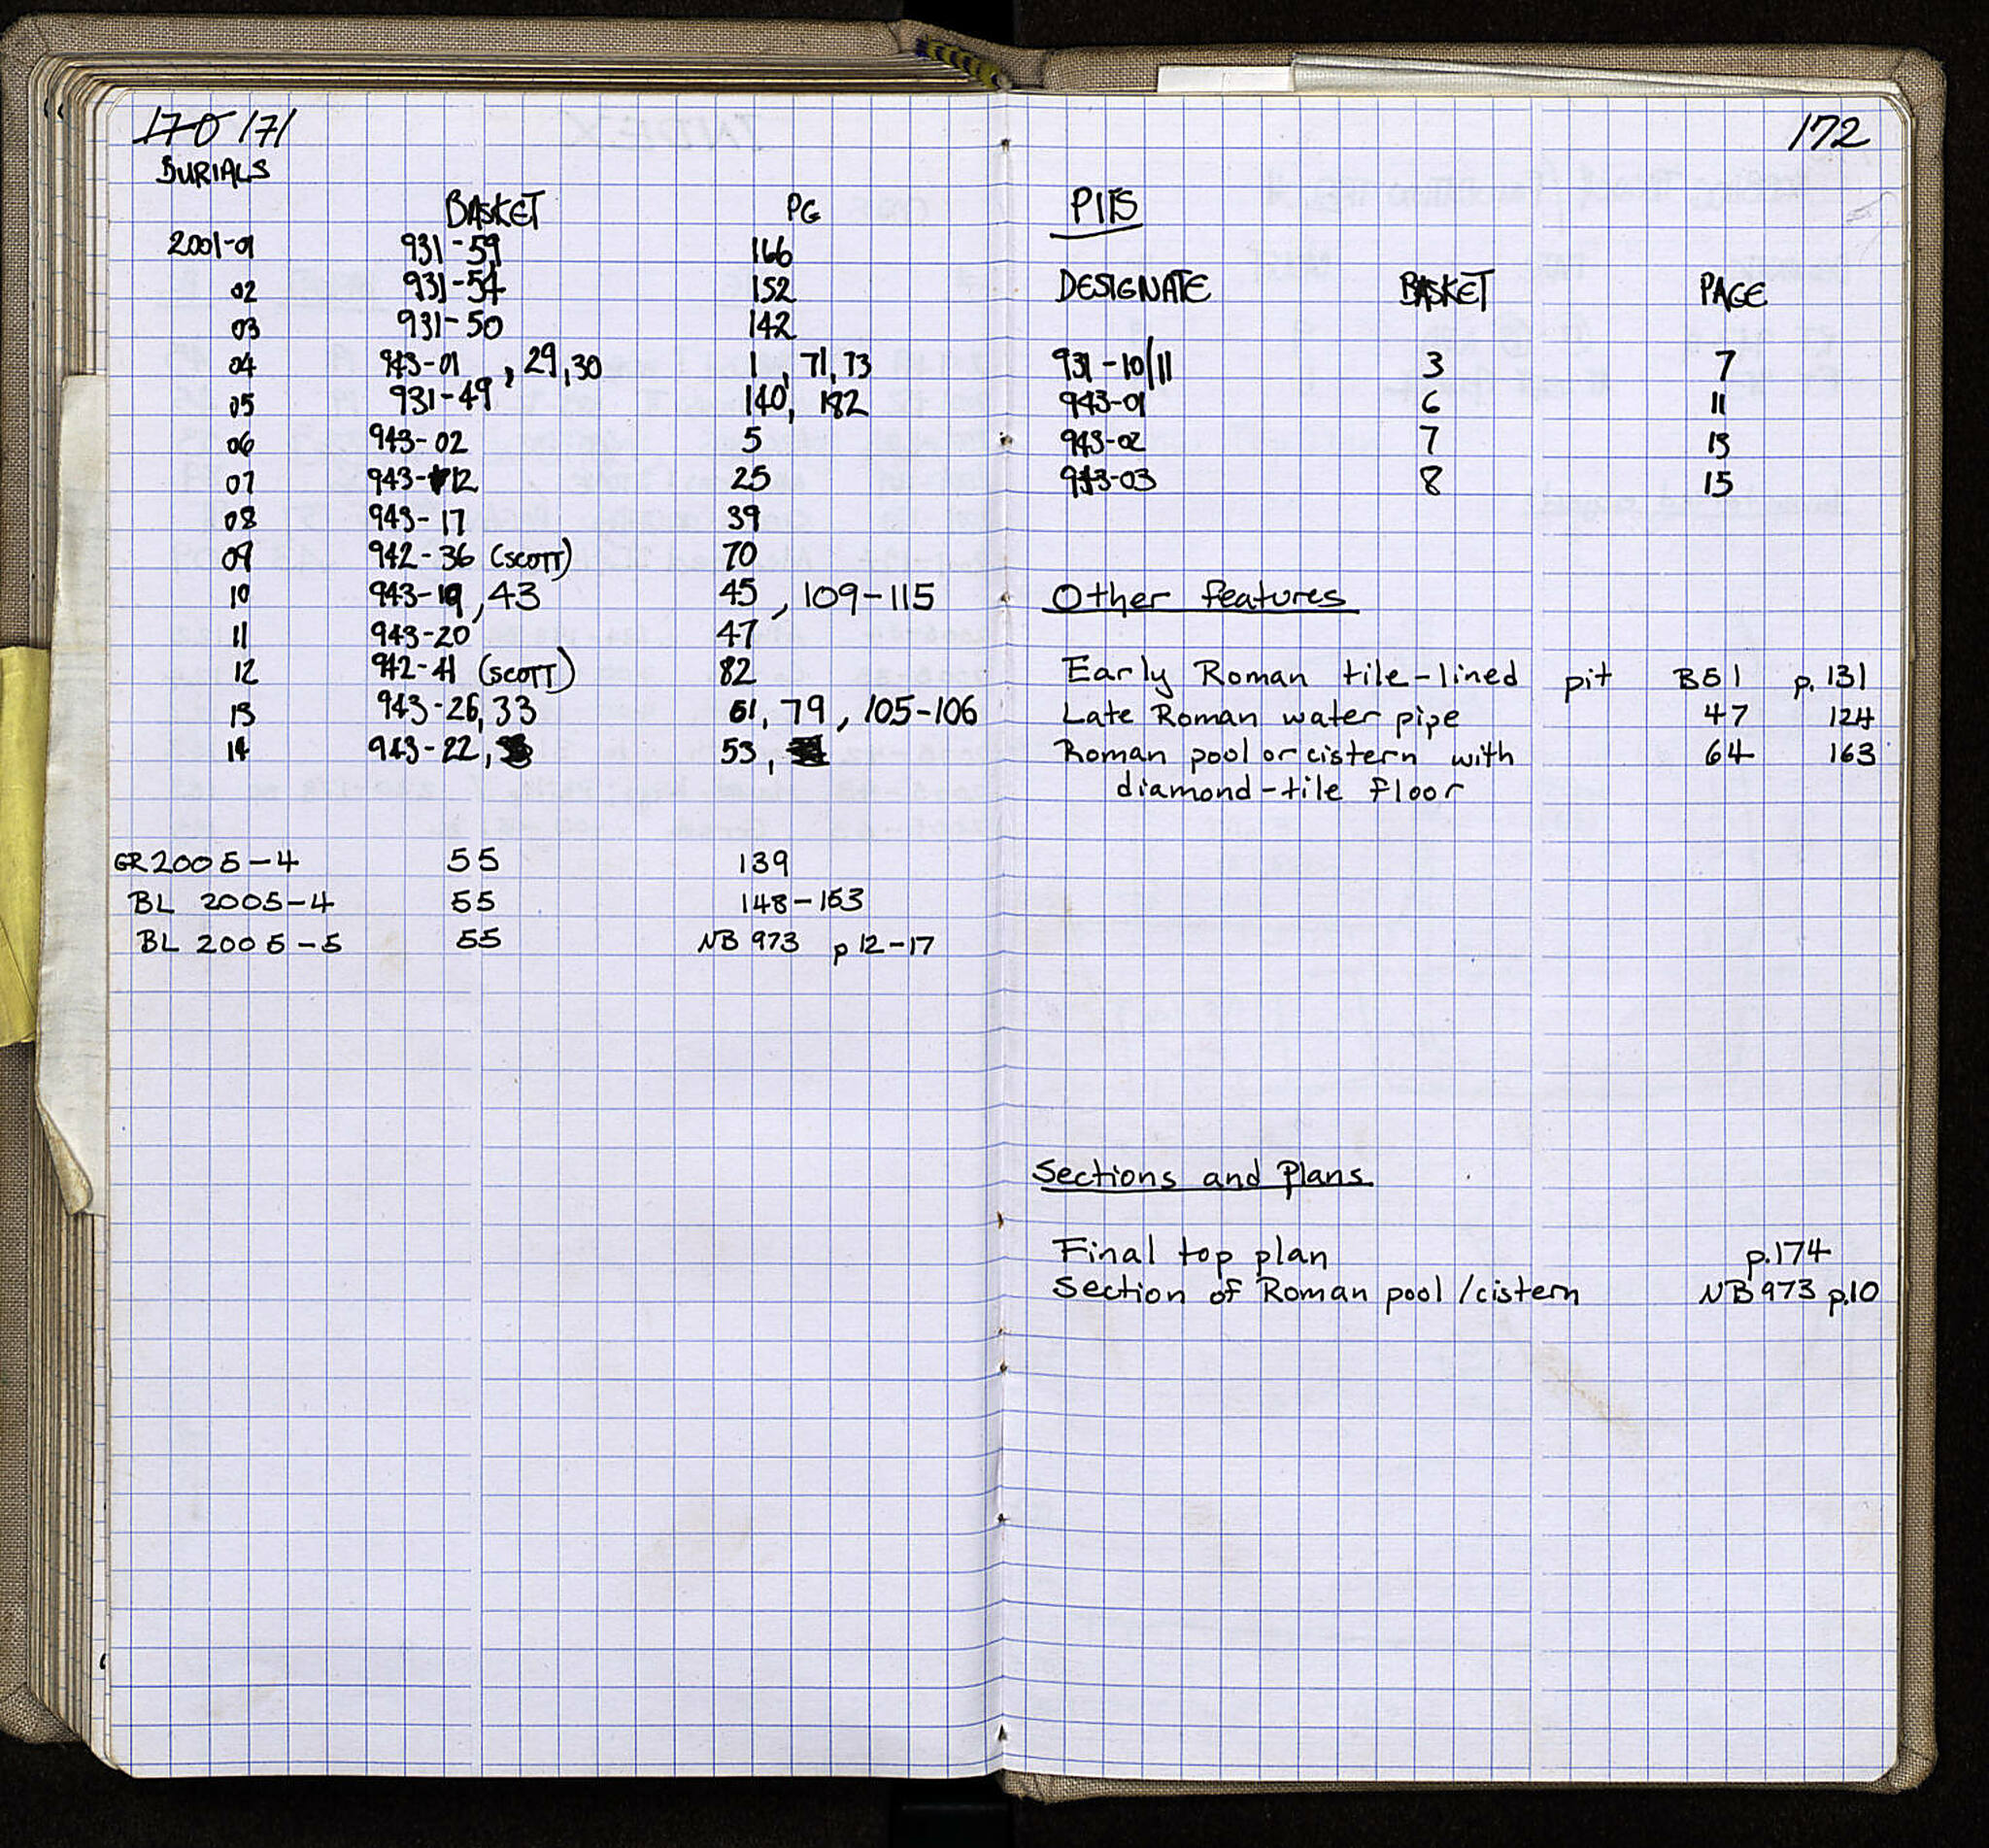 170 171
BURIALS
BASKET PG
2001-01 931-59 166
02 931-54 152
03 931-50 142
04 943-01 , 29,30 1 , 71,73
05 931-49 140, 182
06 943-02 5
07 943-12 25
08 943-17 39
09 942-36 (SCOTT) 70
10 943-19, 43 45 , 109-115
11 943-20 47
12 942-41 (SCOTT) 82
13 943-26,33 61, 79 , 105-106
14 943-22, 53,
GR 2005-4 55 139
BL 2005-4 55 148-153
BL 2005-5 55 NB 973 p 12-17
172
PITS
DESIGNATE BASKET PAGE
931-10/11 3 7
943-01 6 11
943-02 7 13
943-03 8 15
Other features
Early Roman tile-lined pit B51 p. 131
Late Roman water pipe 47 124
Roman pool or cistern with 64 163
diamond-tile floor
Sections and Plans
Final top plan p.174
Section of Roman pool /cistern NB973 p.10